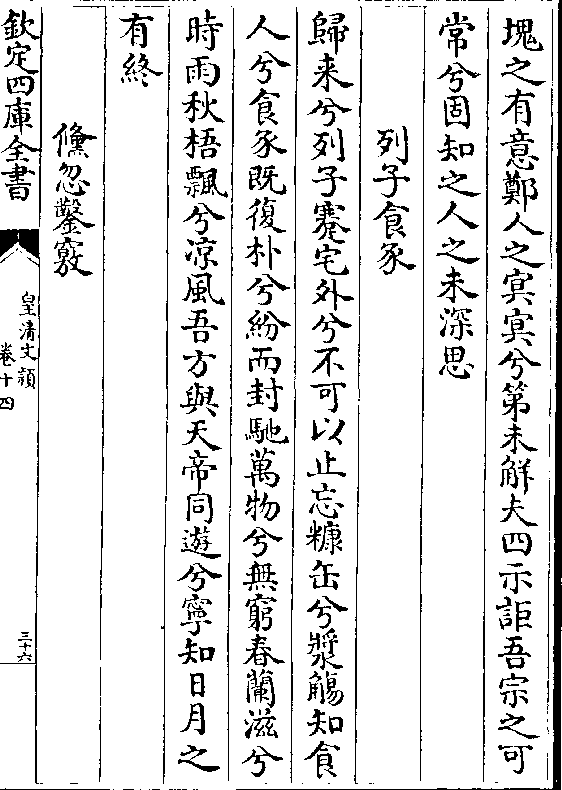 塊之有意鄭人之㝠㝠兮第未解夫四示詎吾宗之可
常兮固知之人之未深思
列子食豕
歸来兮列子蹇宅外兮不可以止忘糠缶兮漿觴知食
人兮食豕既復朴兮紛而封馳萬物兮無窮春蘭滋兮
時雨秋梧飄兮凉風吾方與天帝同遊兮寧知日月之
有終
儵忽鑿竅
欽定四庫全書
皇清文穎
卷十四
三十六